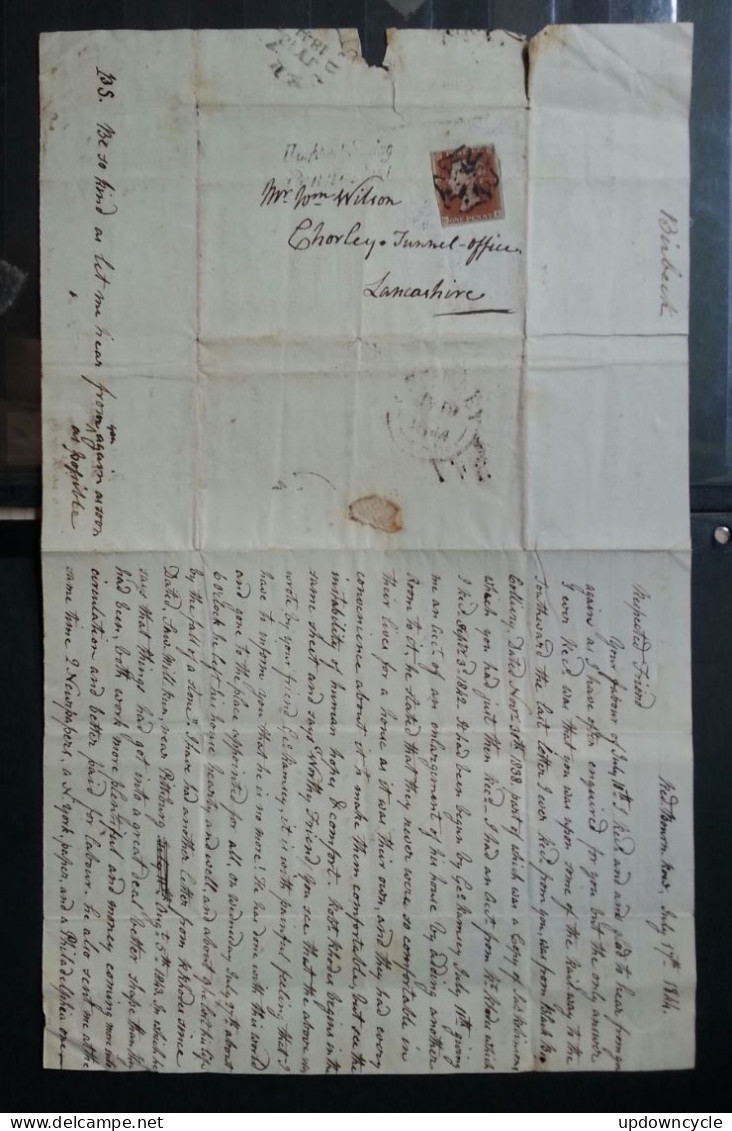 Mr. Wm Wilson
Chorley Tunnel-office
Lancashire
ONE PENNY
Birbeck
PS. Be so kind as let me hear from you again as soon
as possible
Row, July 17th 1844.
Respected Friend
Your favour of July 11th I Recd and am glad to hear from you
again as I have often enquired for you but the only answer
I ever Recd was that you was upon some of the Rail way to the
Southward the last letter I ever Recd from you, was from
Colliery, Dated Novr 30th 1838, part of which was a Copy of
which you had just then Recd. I had an acct from which
I Recd Septr 3rd 1842. It had been begun by Geo Ramsey July 11th giving
me an acct of an enlargement of his house by adding another
Room to it, he stated that they never were so comfortable in
their lives for a house as it was their own, and they had every
convenience about it to make them comfortable, but see the
instability of human hopes & comfort. Robt Rhodes begins in the
same sheet and says Worthy Friend you see that the above was
wrote by your friend Geo Ramsey, it is with painful feeling that I
have to inform you that he is no more! He has done with this world
and gone to the place appointed for all, on wednesday July 27th about
6 o'clock he left his house hearty and well, and about 9 he lost his life
by the fall of a stone". I have had another letter from R Rhodes since
Dated, Saw Mill Run, near Pittsburg Augt 5th 1843, In which he
says that things had got into a great deal better shape than they
had been, both work more plentiful and money coming more into
circulation and better paid for labour. he also sent me at the
same time 2 Newspapers, a N. york, paper, and a Philadelphia one
updowncycle